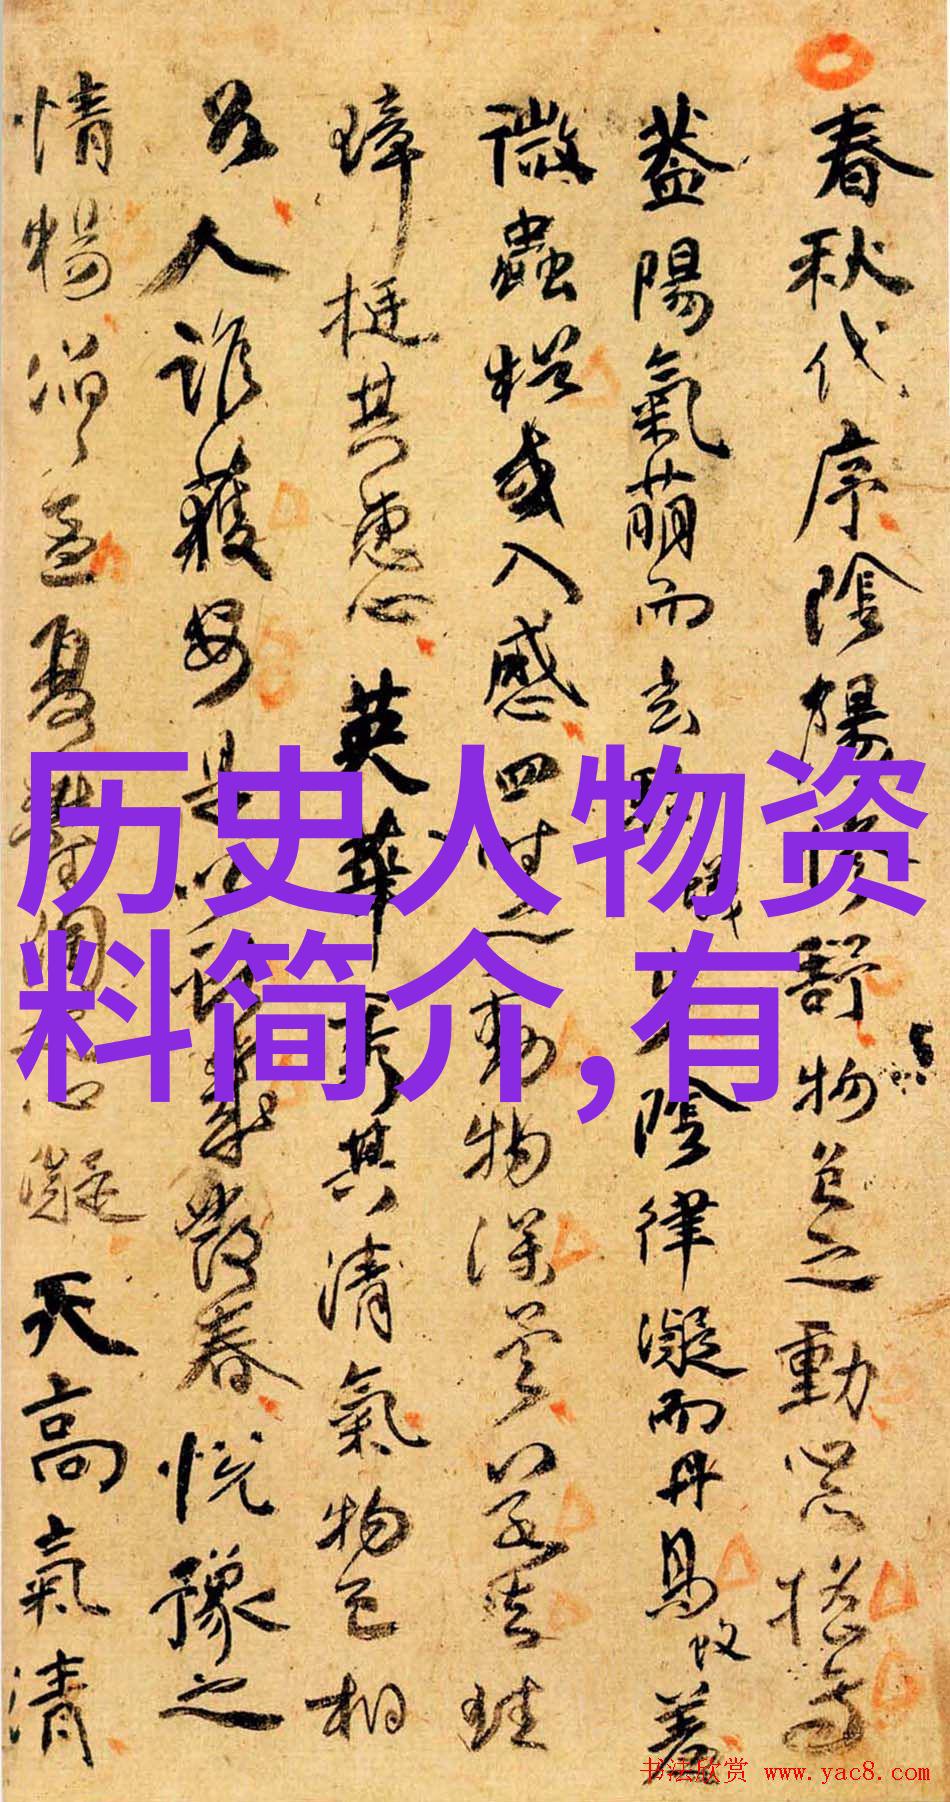 春秋代序陰陽慘舒物色之動心亦搖焉
蓋陽氣萌而玄駒步陰律凝而丹鳥羞
微蟲猶或入感四時之動物深矣若夫珪
璋挺其惠心英華秀其清氣物色相
召人誰獲安是以獻歲發春悅豫之
情暢滔滔孟夏鬱陶之心凝天高氣清
历史人物资
料简介,有
书法欣赏 www.yac8.com